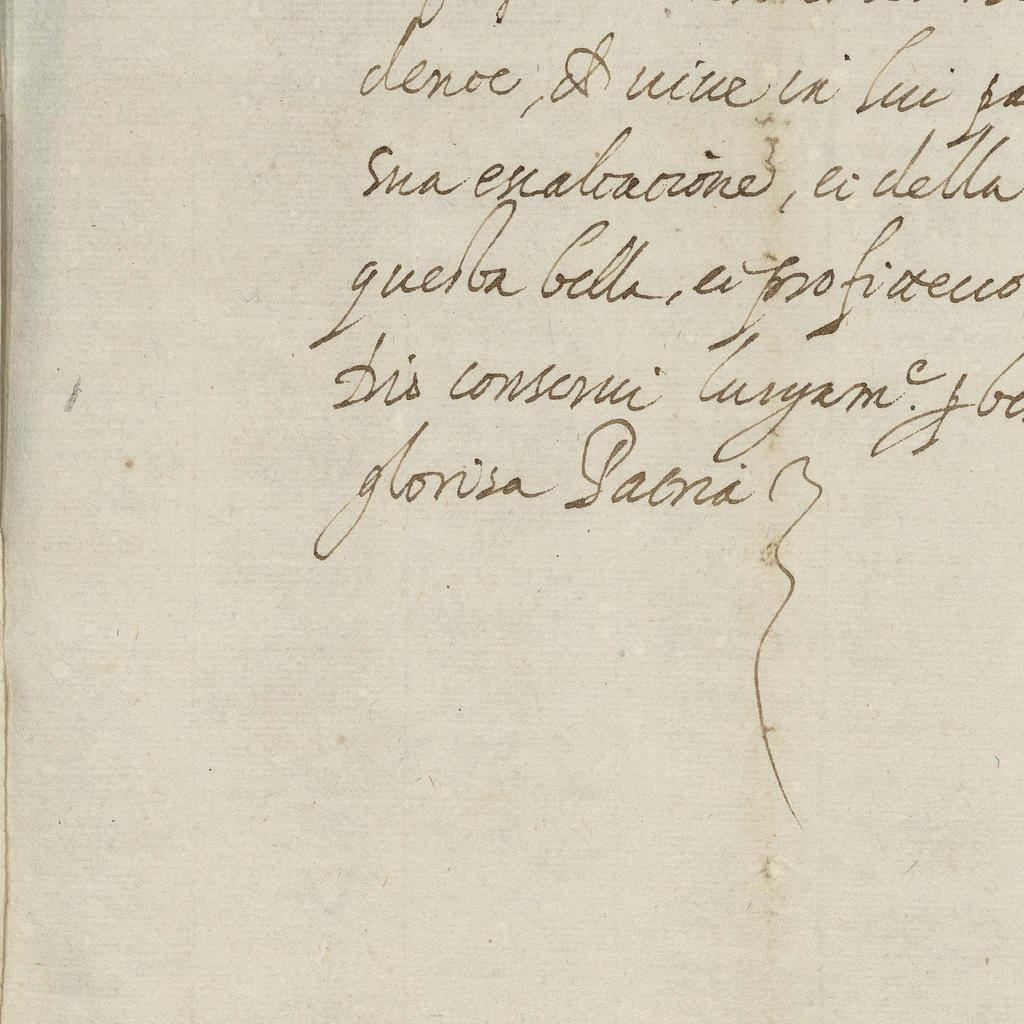 dente, et viue in lui
sua exaltatione, et della
questa bella, et profitteuo
Dio conserui lungam.e p
gloriosa Patria